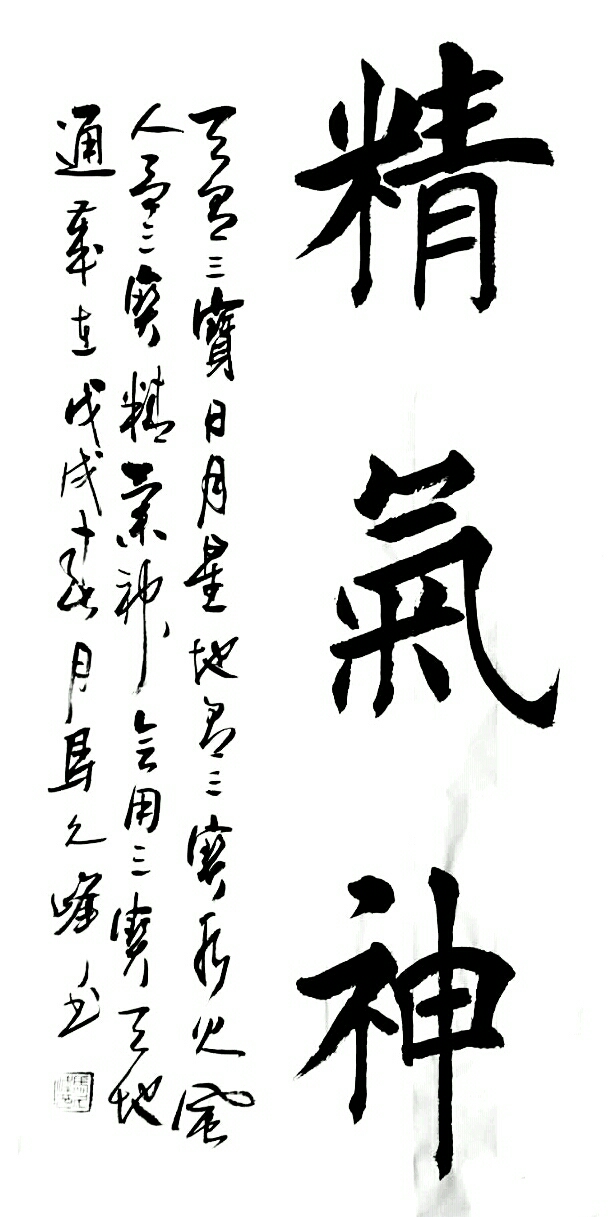 精氣神
天有三寶日月星地有三寶水火風
人有三寶精氣神會用三寶天地
通 歲在戊戌十 月馬 峰书